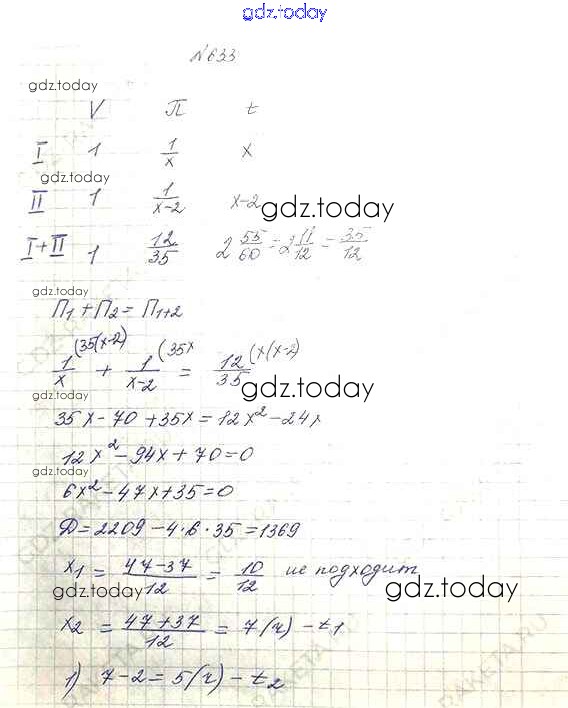 gdz.today
№633
gdz.today
V П t
I 1 1/x x
gdz.today
II 1 1/(x-2) x-2
gdz.today
I+II 1 12/35 2 55/60 = 2 11/12 = 35/12
gdz.today
П₁ + П₂ = П₁₊₂
1/x (35(x-2) + 1/(x-2) (35x = 12/35 (x(x-2)
gdz.today
gdz.today
35x - 70 + 35x = 12x² - 24x
12x² - 94x + 70 = 0
gdz.today
6x² - 47x + 35 = 0
Д = 2209 - 4·6·35 = 1369
x₁ = (47-37)/12 = 10/12 не подходит
gdz.today
gdz.today
x₂ = (47+37)/12 = 7 (ч) - t₁
1) 7 - 2 = 5 (ч) - t₂